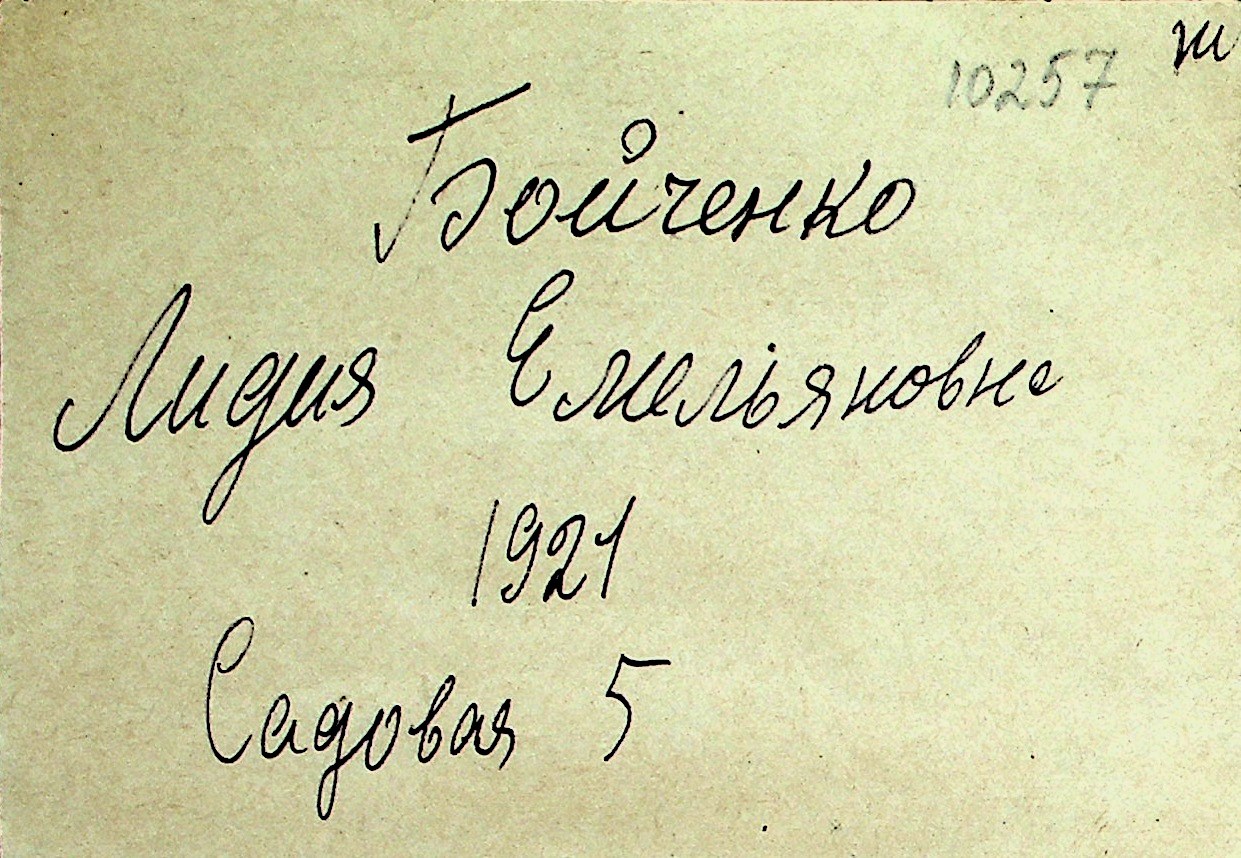 10257 ж
Бойченко
Лидия Емельяновна
1921
Садовая 5